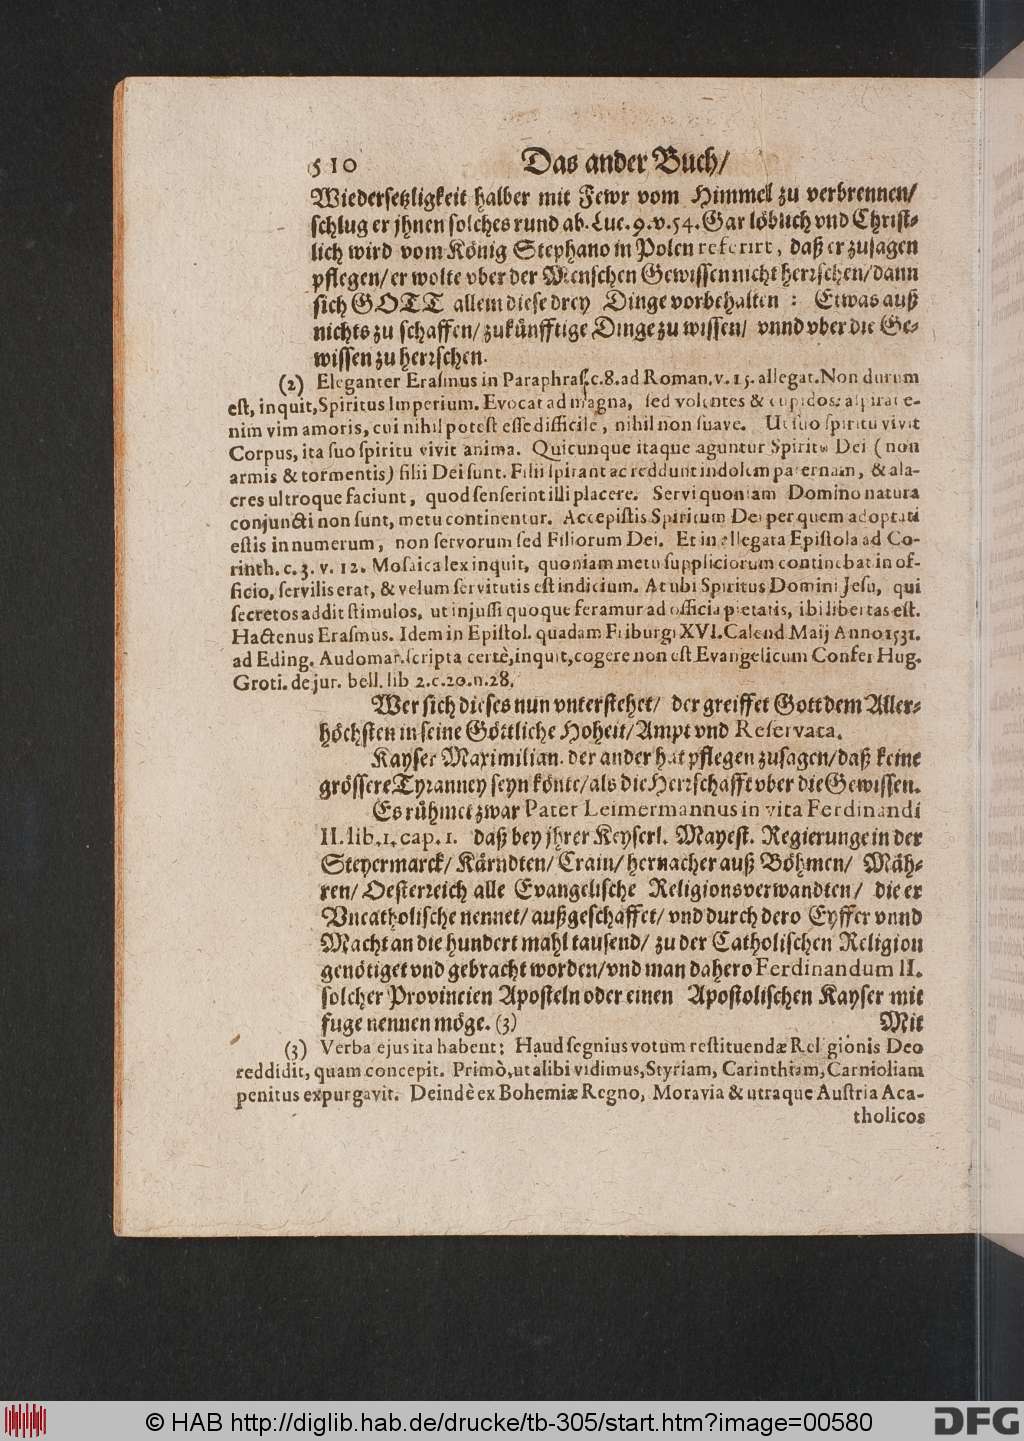 510 Das ander Buch/
Wiedersetzligkeit halber mit Fewr vom Himmel zu verbrennen/
schlug er jhnen solches rund ab. Luc. 9. v. 54. Gar löblich vnd Christ-
lich wird vom König Stephano in Polen referirt, daß er zusagen
pflegen/ er wolte vber der Menschen Gewissen nicht herrschen/ dann
sich GOTT allein diese drey Dinge vorbehalten : Etwas auß
nichts zu schaffen/ zukünfftige Dinge zu wissen/ vnnd vber die Ge-
wissen zu herrschen.
(2) Eleganter Erasmus in Paraphras. c. 8. ad Roman. v. 15. allegat. Non durum
est, inquit, Spiritus Imperium. Evocat ad magna, sed volentes & cupidos: aspirat e-
nim vim amoris, cui nihil potest esse difficile, nihil non suave. Ut suo spiritu vivit
Corpus, ita suo spiritu vivit anima. Quicunque itaque aguntur Spiritu Dei (non
armis & tormentis) filii Dei sunt. Filii spirant ac reddunt indolem paternam, & ala-
cres ultroque faciunt, quod senserint illi placere. Servi quoniam Domino natura
conjuncti non sunt, metu continentur. Accepistis Spiritum Dei per quem adoptati
estis in numerum, non servorum sed Filiorum Dei. Et in allegata Epistola ad Co-
rinth. c. 3. v. 12. Mosaica lex inquit, quoniam metu suppliciorum continebat in of-
ficio, servilis erat, & velum servitutis est indicium. At ubi Spiritus Domini Jesu, qui
secretos addit stimulos, ut injussi quoque feramur ad officia pietatis, ibi libertas est.
Hactenus Erasmus. Idem in Epistol. quadam Friburgi XVI. Calend Maij Anno 1531.
ad Eding. Audomar. scripta certè, inquit, cogere non est Evangelicum Confer Hug.
Groti. de jur. bell. lib 2. c. 20. n. 28.
Wer sich dieses nun vnterstehet/ der greiffet Gott dem Aller-
höchsten in seine Göttliche Hoheit/ Ampt vnd Reservata.
Kayser Maximilian. der ander hat pflegen zusagen/ daß keine
grössere Tyranney seyn könte/ als die Herrschafft vber die Gewissen.
Es rühmet zwar Pater Leimermannus in vita Ferdinandi
II. lib. 1. cap. 1. daß bey jhrer Keyserl. Mayest. Regierunge in der
Steyermarck/ Kärndten/ Crain/ hernacher auß Böhmen/ Mäh-
ren/ Oesterreich alle Evangelische Religionsverwandten/ die er
Vncatholische nennet/ außgeschaffet/ vnd durch dero Eyffer vnnd
Macht an die hundert mahl tausend/ zu der Catholischen Religion
genötiget vnd gebracht worden/ vnd man dahero Ferdinandum II.
solcher Provincien Aposteln oder einen Apostolischen Kayser mit
fuge nennen möge. (3) Mit
(3) Verba ejus ita habent; Haud segnius votum restituendæ Religionis Deo
reddidit, quam concepit. Primò, ut alibi vidimus, Styriam, Carinthiam, Carnioliam
penitus expurgavit. Deindè ex Bohemiæ Regno, Moravia & utraque Austria Aca-
tholicos
© HAB http://diglib.hab.de/drucke/tb-305/start.htm?image=00580
DFG